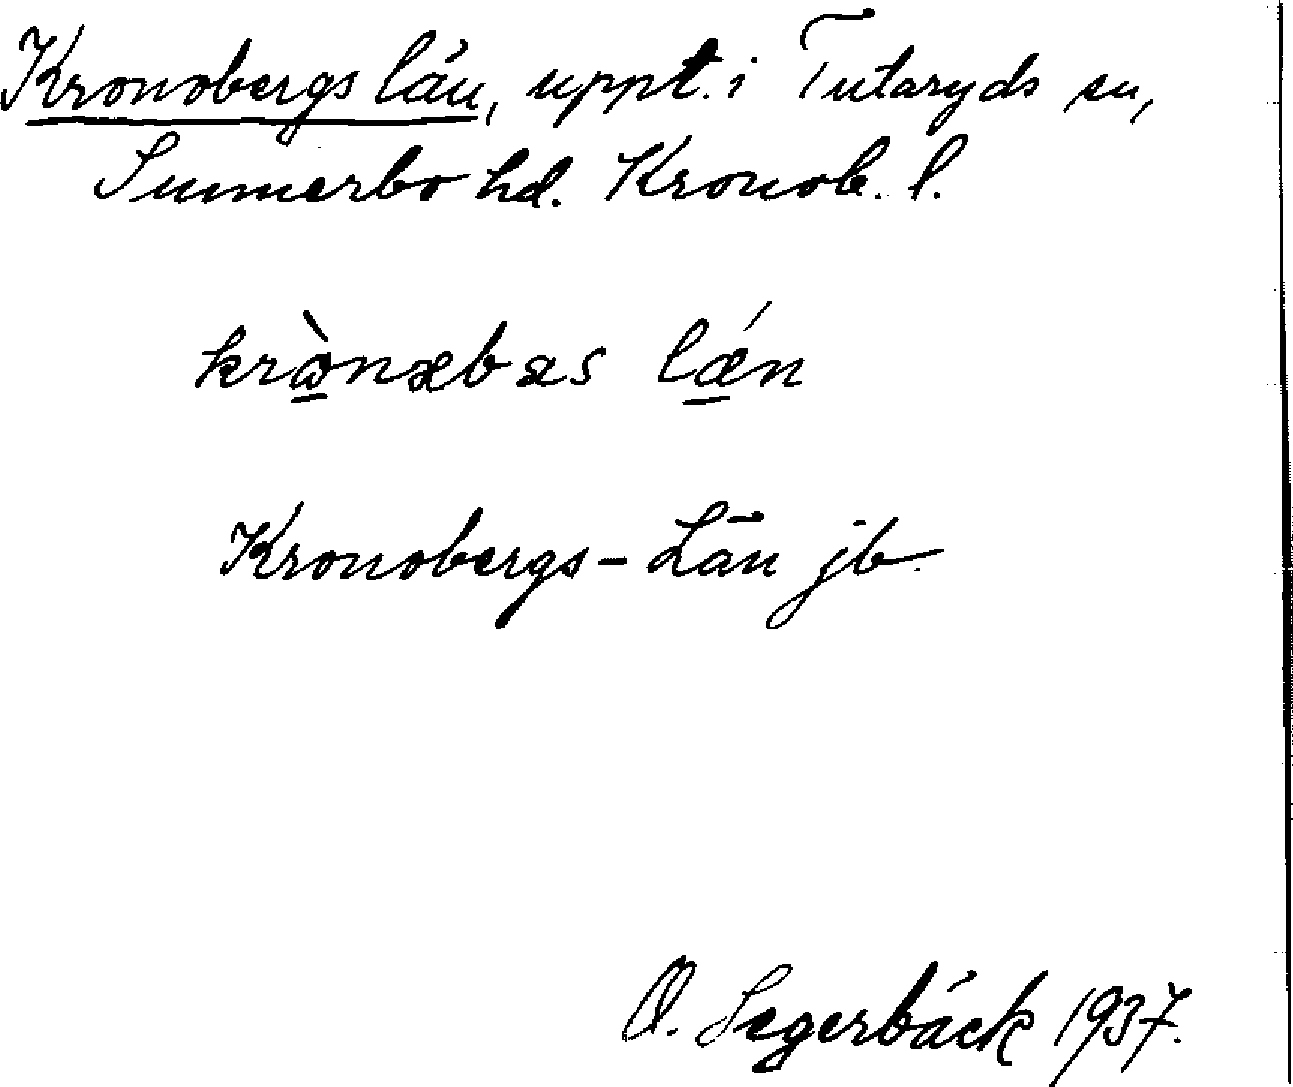 Kronobergs län, uppt. i Tutaryds sn,
Sunnerbo hd. Kronob. l.
krὼnæbæs lǽn
Kronobergs-Län jb.
O. Segerbäck 1937.